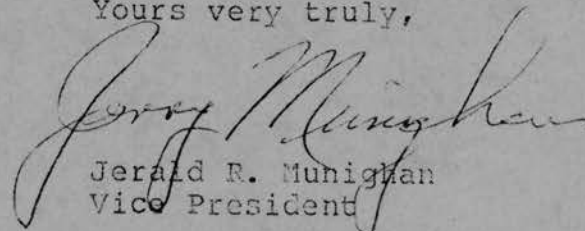 Yours very truly,
Jerry Munighan
Jerald R. Munighan
Vice President